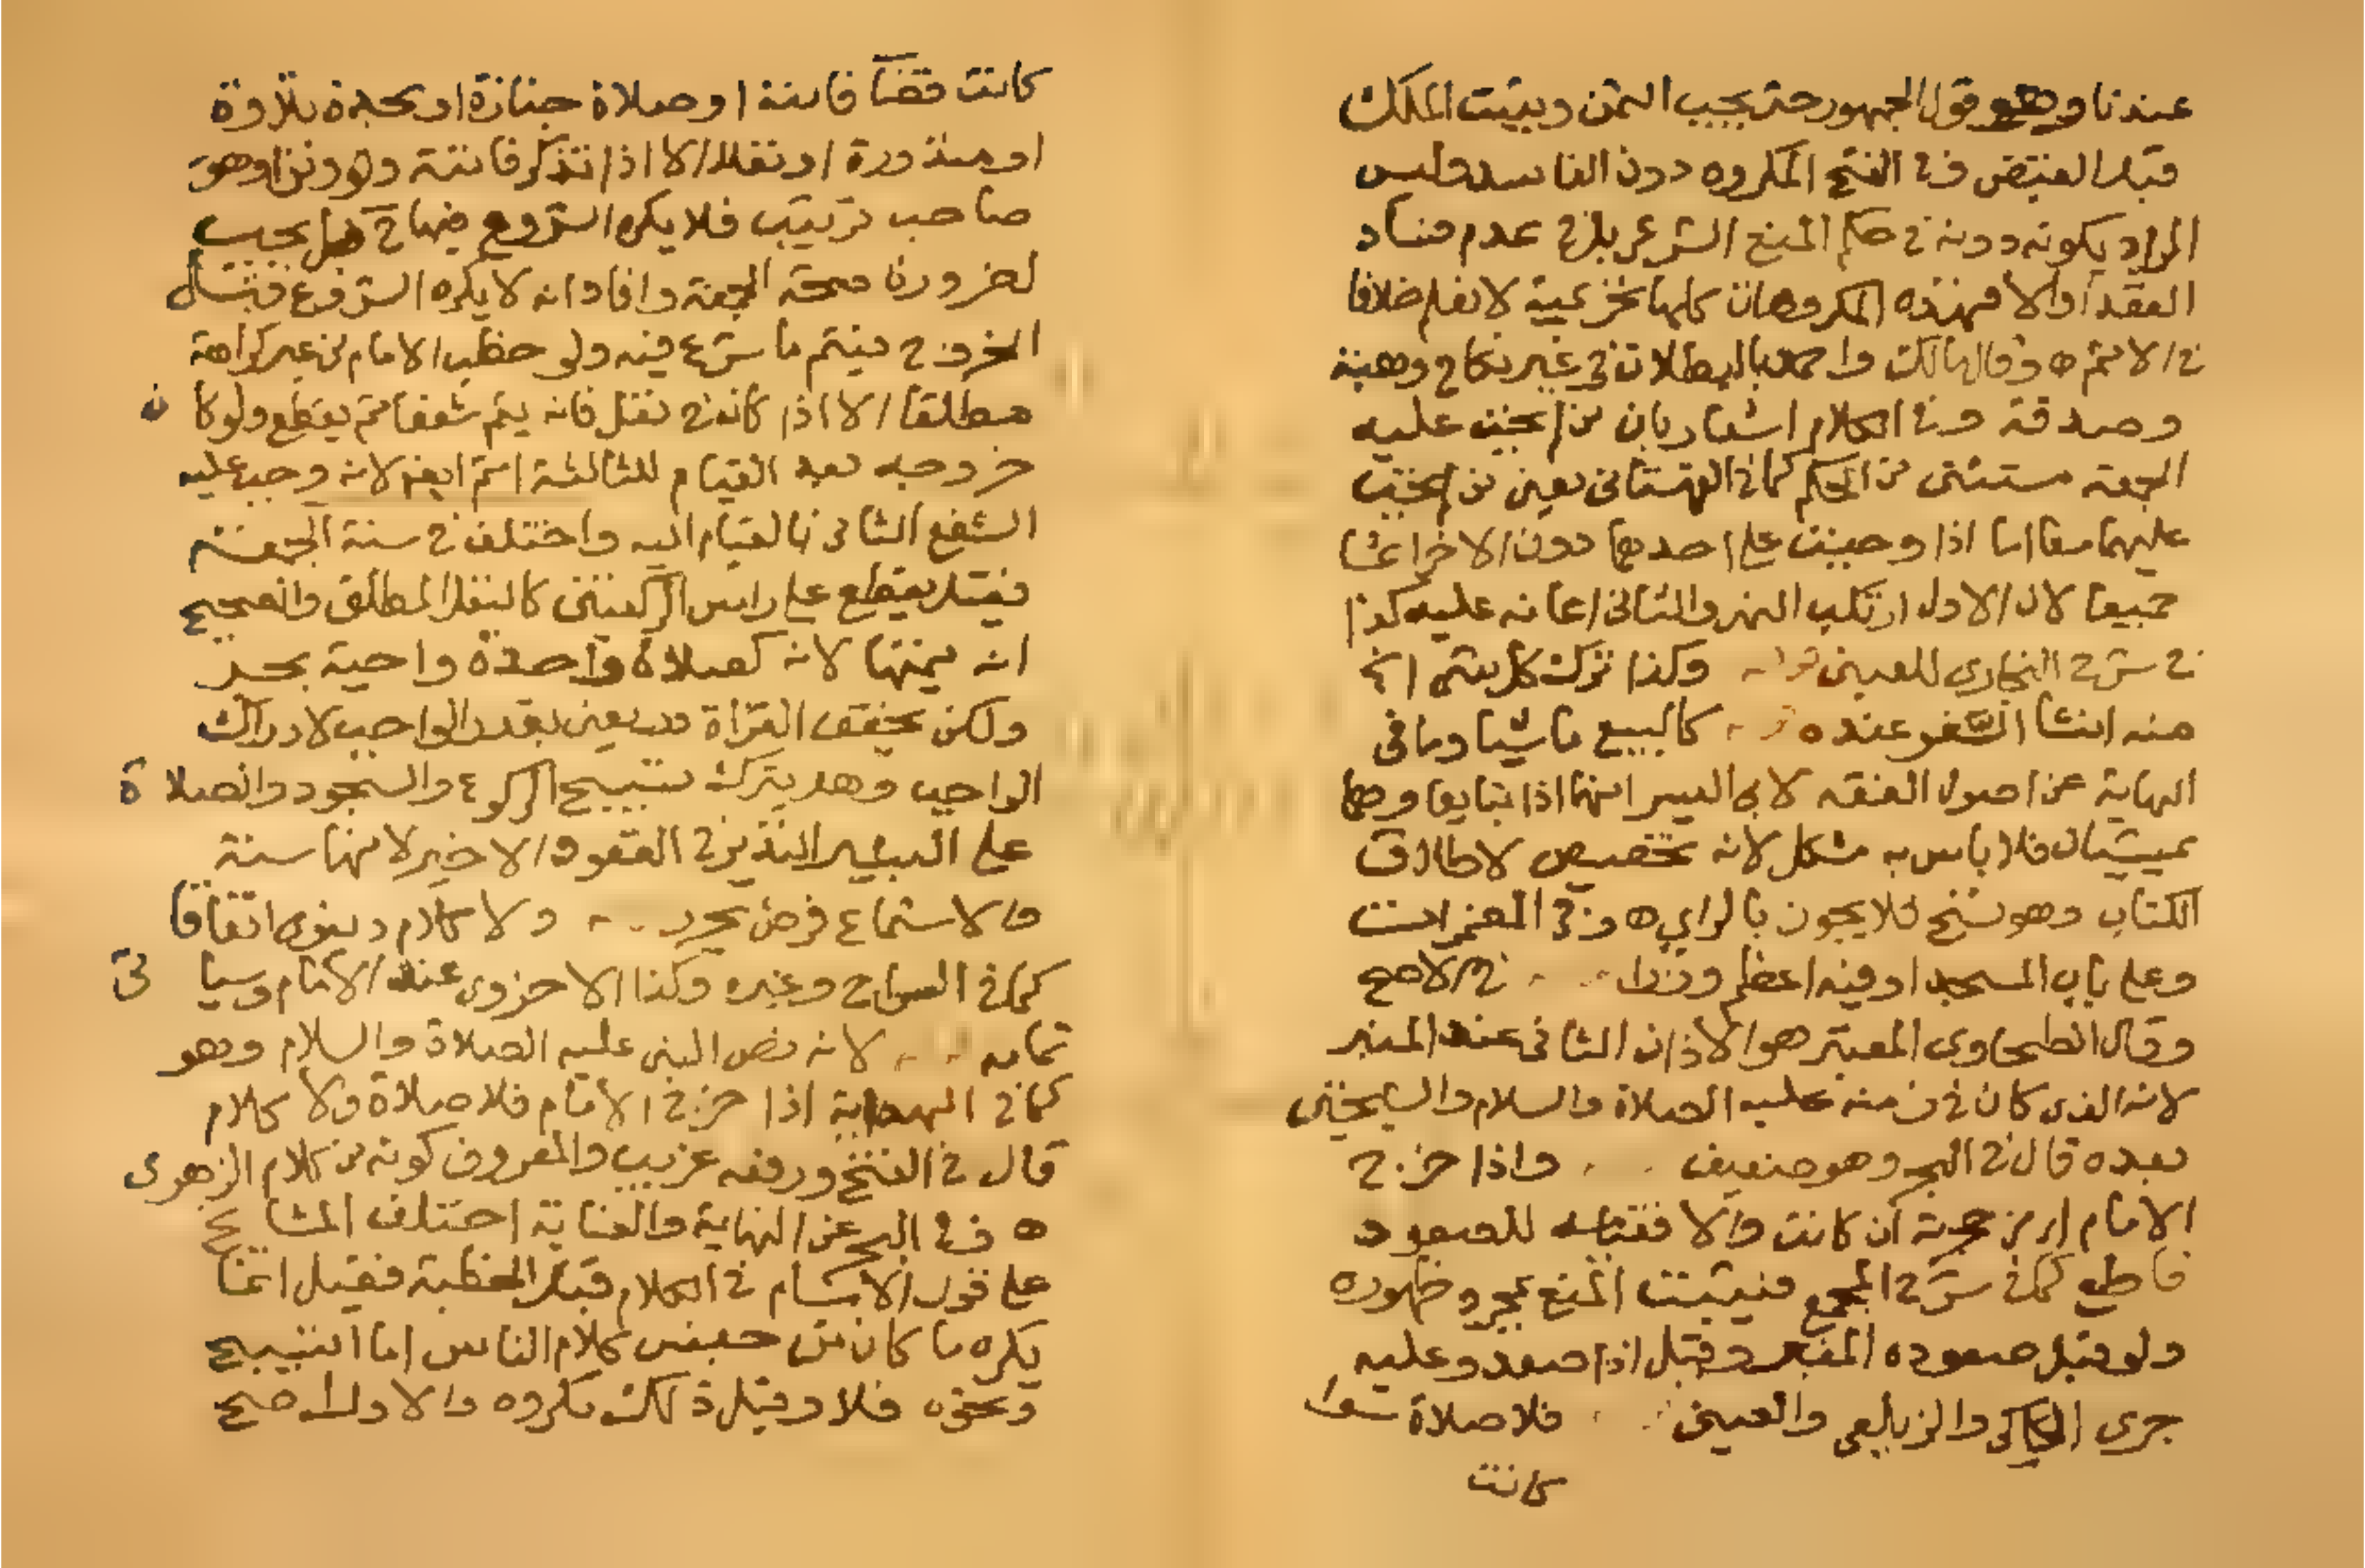 عندنا وهو قول الجمهور حتى يجب الثمن ويثبت الملك
قبل القبض وفي الفتح المكروه دون الفاسد وليس
المراد بكونه دونه في حكم المنع الشرعي بل في عدم فساد
العقد والا فهذه المكروهات كلها تحريمية لا نعلم خلافا
في الاثم ه وقال مالك واحمد بالبطلان في غير نكاح وهبة
وصدقة وفي الكلام اشعار بان من لم تجب عليه
الجمعة مستثنى من الحكم كما في القهستاني يعني من لم تجب
عليهما معا اما اذا وجبت على احدهما دون الاخر اثما
جميعا لان الاول ارتكب النهي والثاني اعانه عليه كذا
في شرح البخاري للعيني وكذا ترك كل شئ الخ
منه انشا السفر عنده كالبيع ماشيا وما في
النهاية عن اصول الفقه لابي اليسر انهما اذا تبايعا وهما
يمشيان فلا باس به مشكل لانه تخصيص لاطلاق
الكتاب وهو نسخ فلا يجوز بالراي ه وفي المضمرات
وعلى باب المسجد او فيه اعظم وزرا في الاصح
وقال الطحاوي المعتبر هو الاذان الثاني عند المنبر
لانه الذي كان في زمنه عليه الصلاة والسلام والشيخين
بعده قال في البحر وهو ضعيف واذا خرج
الامام اي من حجرته ان كانت والا فقيامه للصعود
قاطع كما في شرح المجمع فيثبت المنع بمجرد ظهوره
ولو قبل صعوده المنبر وقيل اذا صعد وعليه
جرى الكاكي والزيلعي والعيني فلا صلاة سوا
كانت
كانت قضا فائتة او صلاة جنازة او سجدة تلاوة
او منذورة او نفلا الا اذا تذكر فائتة ولو وترا وهو
صاحب ترتيب فلا يكره الشروع فيها ح بل يجب
لضرورة صحة الجمعة وافاد انه لا يكره الشروع قبل
الخروج فيتم ما شرع فيه ولو خطب الامام من غير كراهة
مطلقا الا اذا كان في نفل فانه يتم شفعا ثم يقطع ولو كان
خروجه بعد القيام للثالثة اتم ايضا لانه وجب عليه
الشفع الثاني بالقيام اليه واختلف في سنة الجمعة
فقيل يقطع على راس الركعتين كالنفل المطلق والصحيح
انه يتمها لانه كصلاة واحدة واجبة بحر
ولكن يخفف القراة يعني بقدر الواجب لادراك
الواجب وهل يترك تسبيح الركوع والسجود والصلاة
على البشير النذير في القعود الاخير لانها سنة
والاستماع فرض يحرر ولا كلام دنيوي اتفاقا
كما في السراج وغيره وكذا الاخروي عند الامام وسياتي
تمامه لانه نص النبي عليه الصلاة والسلام وهو
كما في الهداية اذا خرج الامام فلا صلاة ولا كلام
قال في الفتح ورفعه غريب والمعروف كونه من كلام الزهري
ه وفي البحر عن النهاية والعناية اختلف المشايخ
على قول الامام في الكلام قبل الخطبة فقيل انما
يكره ما كان من جنس كلام الناس اما التسبيح
ونحوه فلا وقيل ذلك مكروه والاول اصح